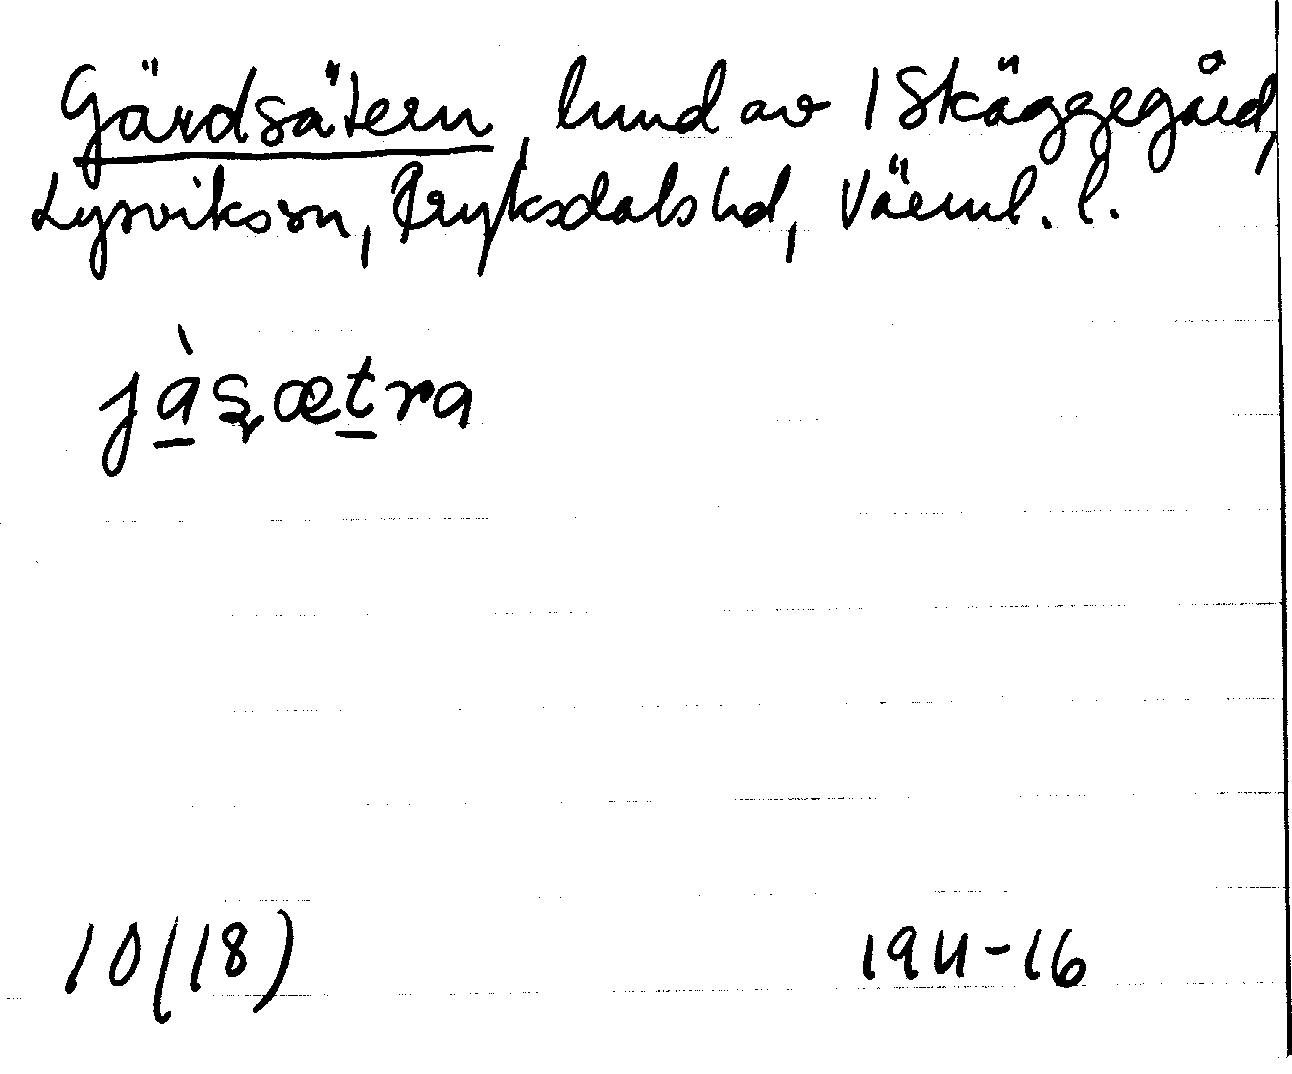 Gärdsätern, lund av 1 Skäggegård,
Lysviks sn, Fryksdals hd, Värml. l.
jàʂætra
10(18)
1911-16